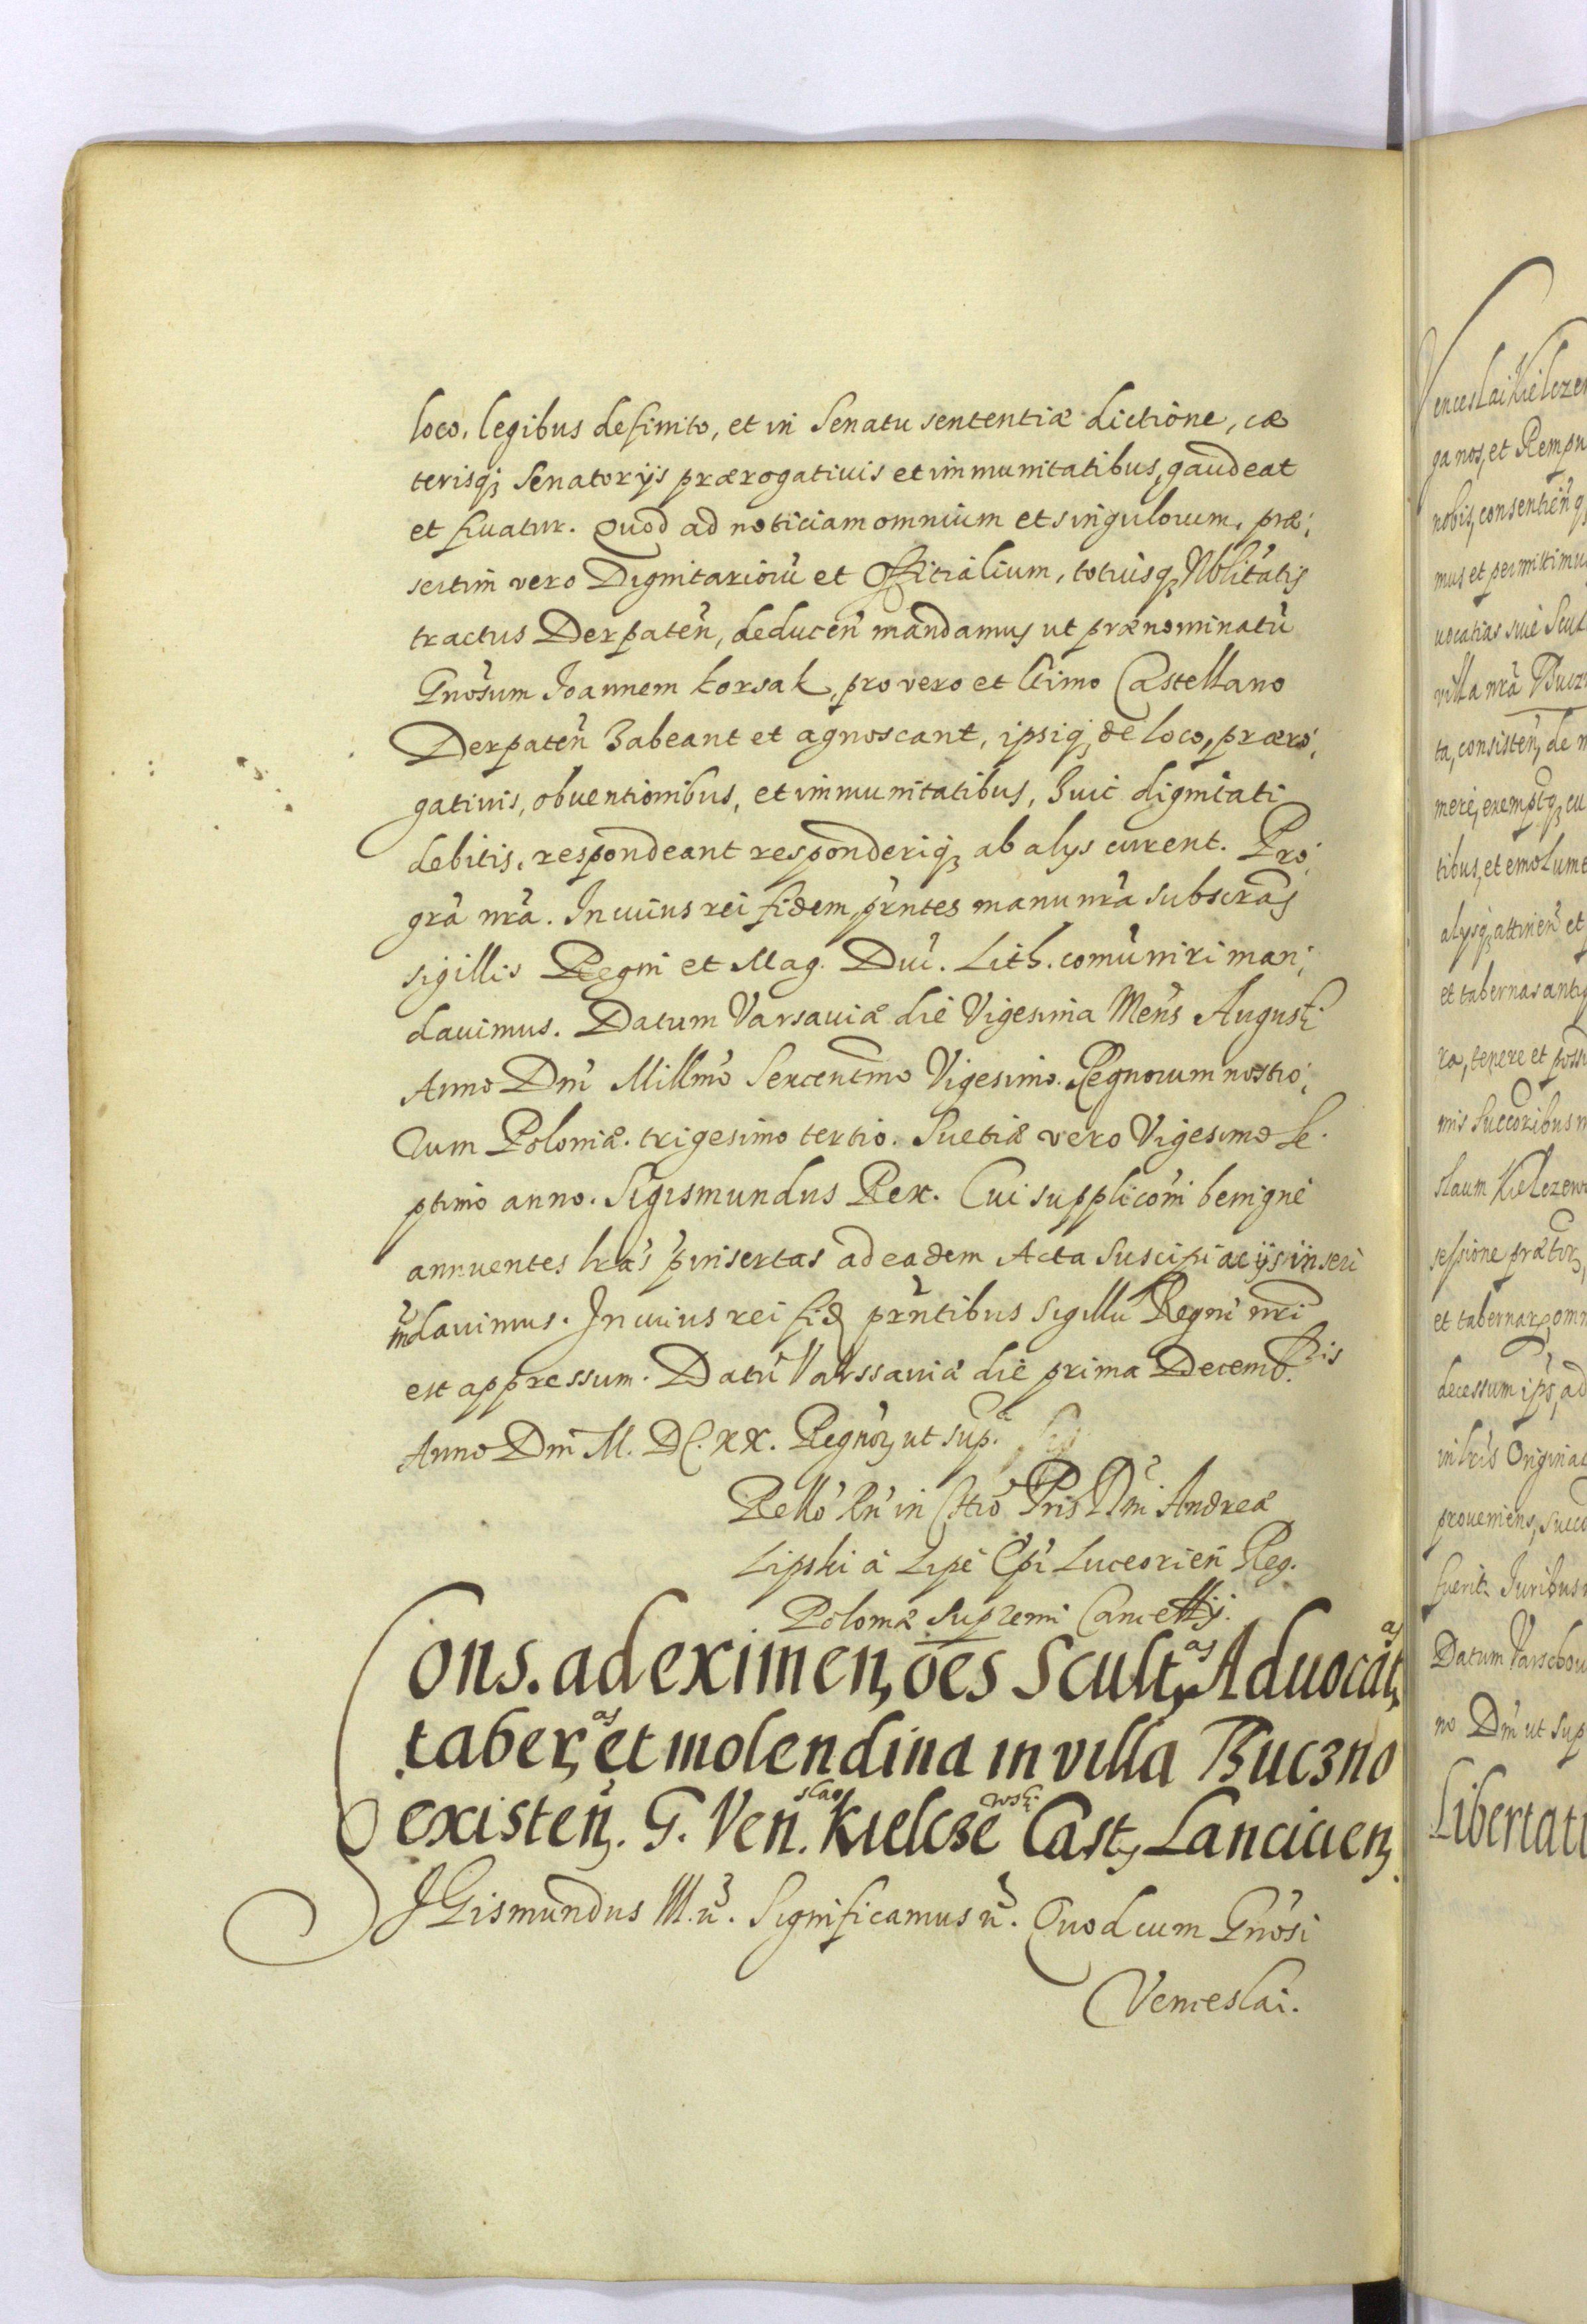 loco, legibus definito, et in Senatu sententiæ dictione, cæ
terisq3 Senatorijs prærogatiuis et immunitatibus, gaudeat
et fruatur. Quod ad noticiam omnium et singulorum, præ:
sertim vero Dignitarioru᷑ et Officialium, totiusq3 Nobilitatis
tractus Derpaten̄, deducen̄ mandamus ut prænominatū
Gnōsum Joannem Korsak, pro vero et ltimo Castellano
Derpaten̄ habeant et agnoscant, ipsiq3 de loco, præro:
gatiuis, obuentionibus, et immunitatibus, huic dignitati
debitis, respondeant responderiq3 ab alys curent. Pro
gra̅ nra̅. In cuius rei fidem, prn̄tes manu nra̅ subscras̄
sigillis Regni et Mag. Duc̄. Lith. comūniri man:
dauimus. Datum Varsauiæ die Vigesima Mens̄ Augusti
Anno Dn̄i Millmō Sexcentmō Vigesimo. Regnorum nostro:
rum Poloniæ. trigesimo tertio. Suetiæ vero Vigesimo Se.
ptimo anno. Sigismundus Rex. Cui supplicōni benigne
annuentes lras̄ p̄insertas ad eadem Acta suscipi ac ijs inseri
mn̄dauimus. In cuius rei fid3 prn̄tibus Sigillū Regni nrī
est appressum. Datū Varssauiæ die prima Decembris
Anno Dn̄i M. DC. XX. Regnor3 ut sup.
Rellō Rn̄ in Chrō Pris Dn̄i Andreæ
Lipski à Lipe Ep̄i Luceorien̄ Reg.
Poloniæ Supremi Cancellrij.
Cons. ad eximen, oēs Scult,as Aduocat,as
taber,as et molendina in villa Buczno
existen̄. G. Ven.slao Kielczewski Cast, Lanciciens
SIGismundus III. n̄. Significamus n̄. Quod cum Gnōsi
Venceslai.
Venceslai Kielczew
ga nos, et Rempu
nobis, consentien̄ q3
mus et permittimus
uocatias siue Scul
villa nrā Bucz
ta, consisten̄, de m
mere, exemptq3 cu
tibus, et emolume
alysq3 attinen̄ et
et tabernas antiq
ra, tenere et possi
mis Successoribus n
slaum Kielczews
sessione prætor,
et tabernar3, omn
decessum ips̄, ad
in lris̄ Originac
proueniens, succ
fuerit. Juribus n
Datum Varschou
no Dn̄i ut sup
Libertati